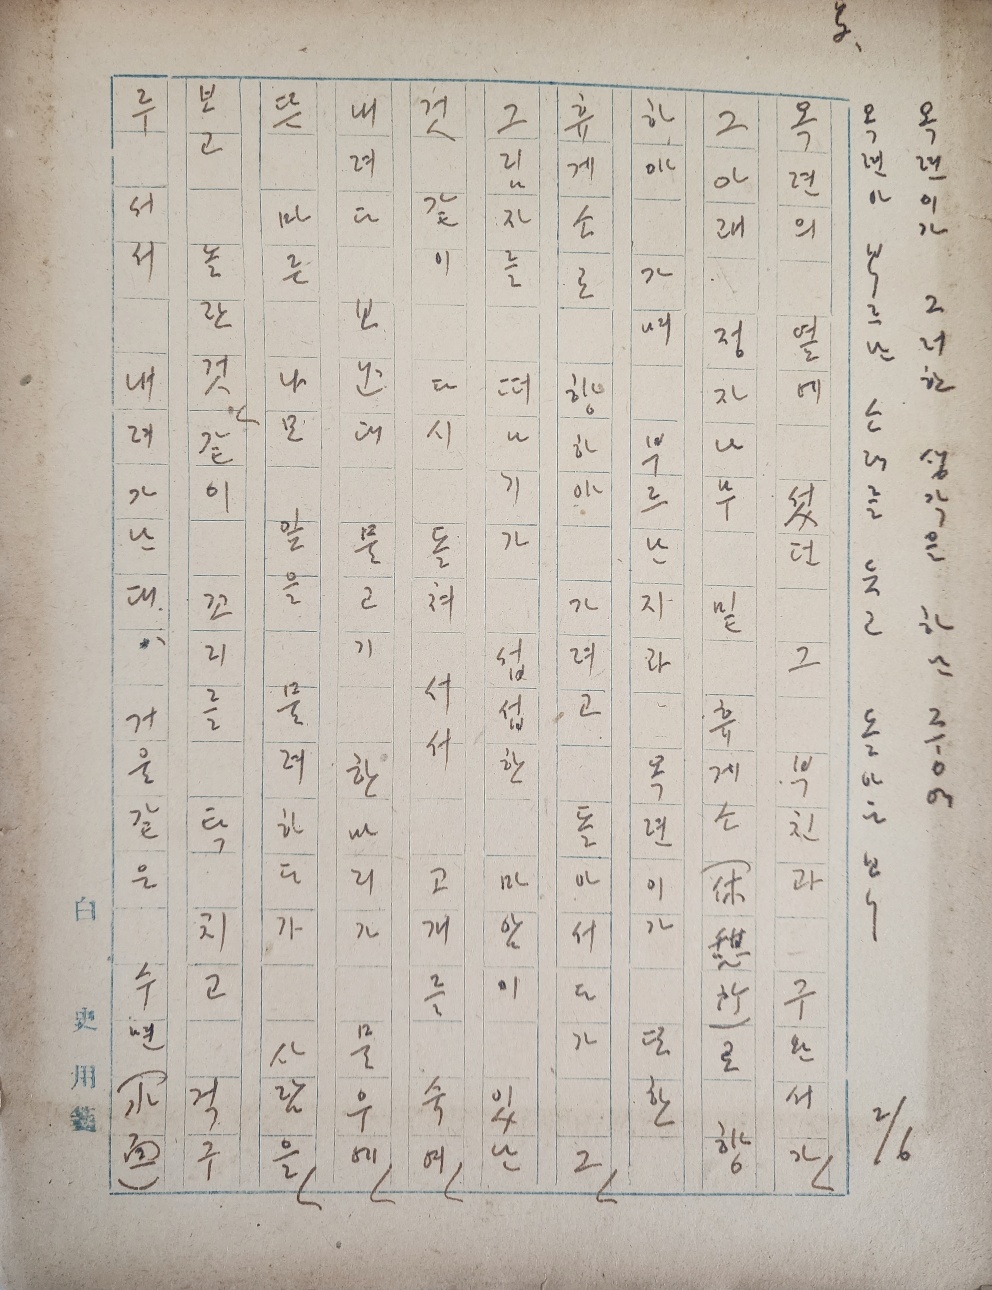 5、
옥련이가 그러한 생각을 하난 중에
옥련아 부르난 소래를 듯고 돌아을 보니
2/6
옥련의 열에 섯던 그 부친과 구완서가
그 아래 정자나무 밑 휴게소(休憩所)로 향
하야 가며 부르난지라 옥련이가 또한
휴게소로 향하야 가려고 돌아서다가 그
그림자를 떠나기가 섭섭한 마암이 있난
것 같이 다시 돌쳐서서 고개를 숙여
내려다 보난대 물고기 한 마리가 물우에
뜬 마른 나무 잎을 물려하다가 사람을
보고 놀란것 같이 꼬리를 탁 치고 거꾸
루 서서 내려가난대 거울같은 수면(水面)
白史用箋